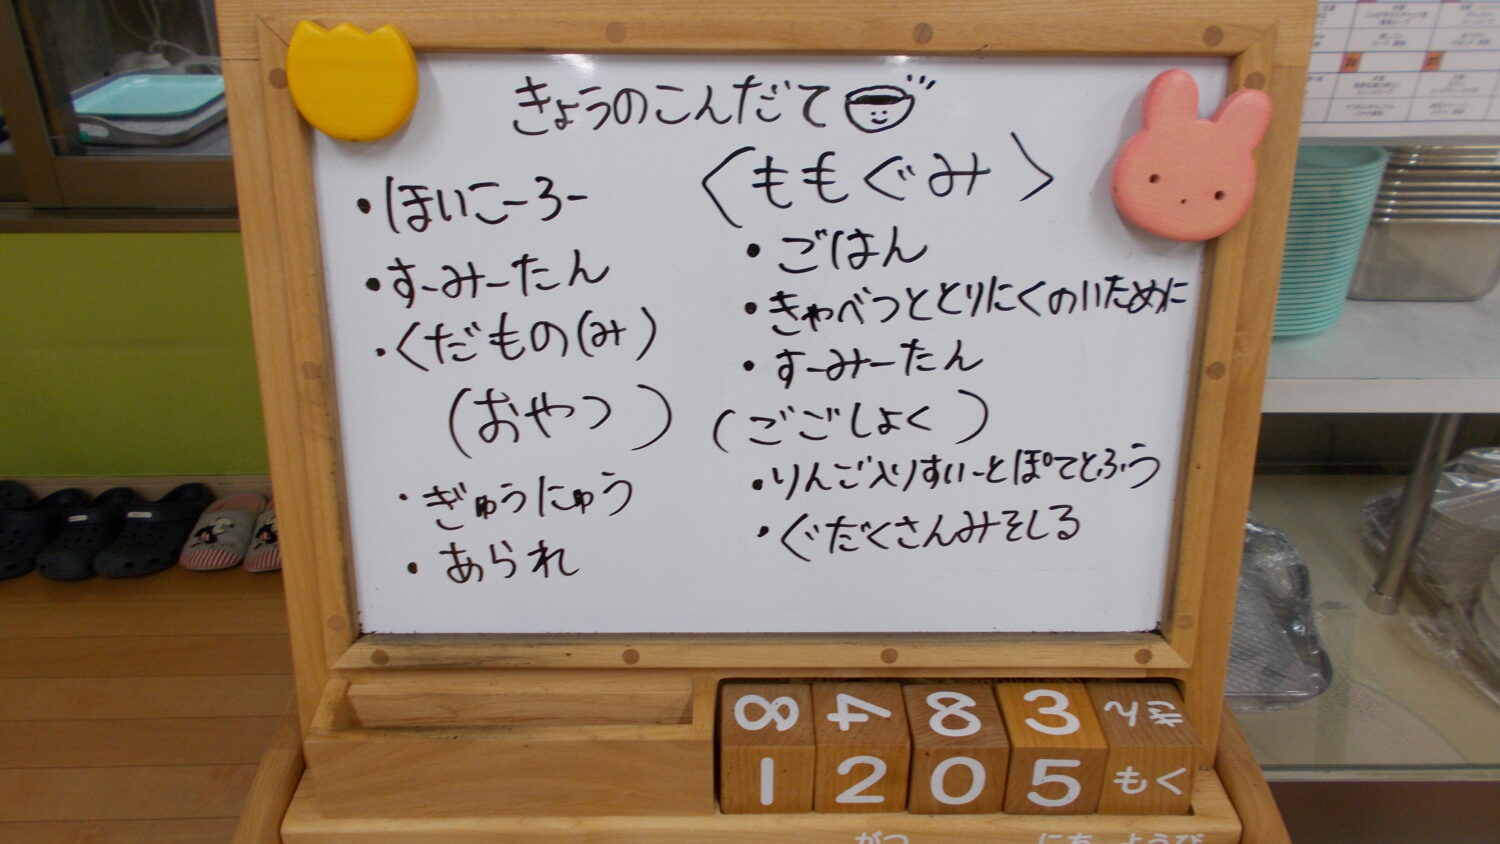 きょうのこんだて
・ほいこーろー
・すーみーたん
・くだもの(み)
(おやつ)
・ぎゅうにゅう
・あられ
〈ももぐみ〉
・ごはん
・きゃべつととりにくのいために
・すーみーたん
(ごごしょく)
・りんご入りすいーとぽてとふう
・ぐだくさんみそしる
8 4 8 3 きん
1 2 0 5 もく
がつ にち ようび